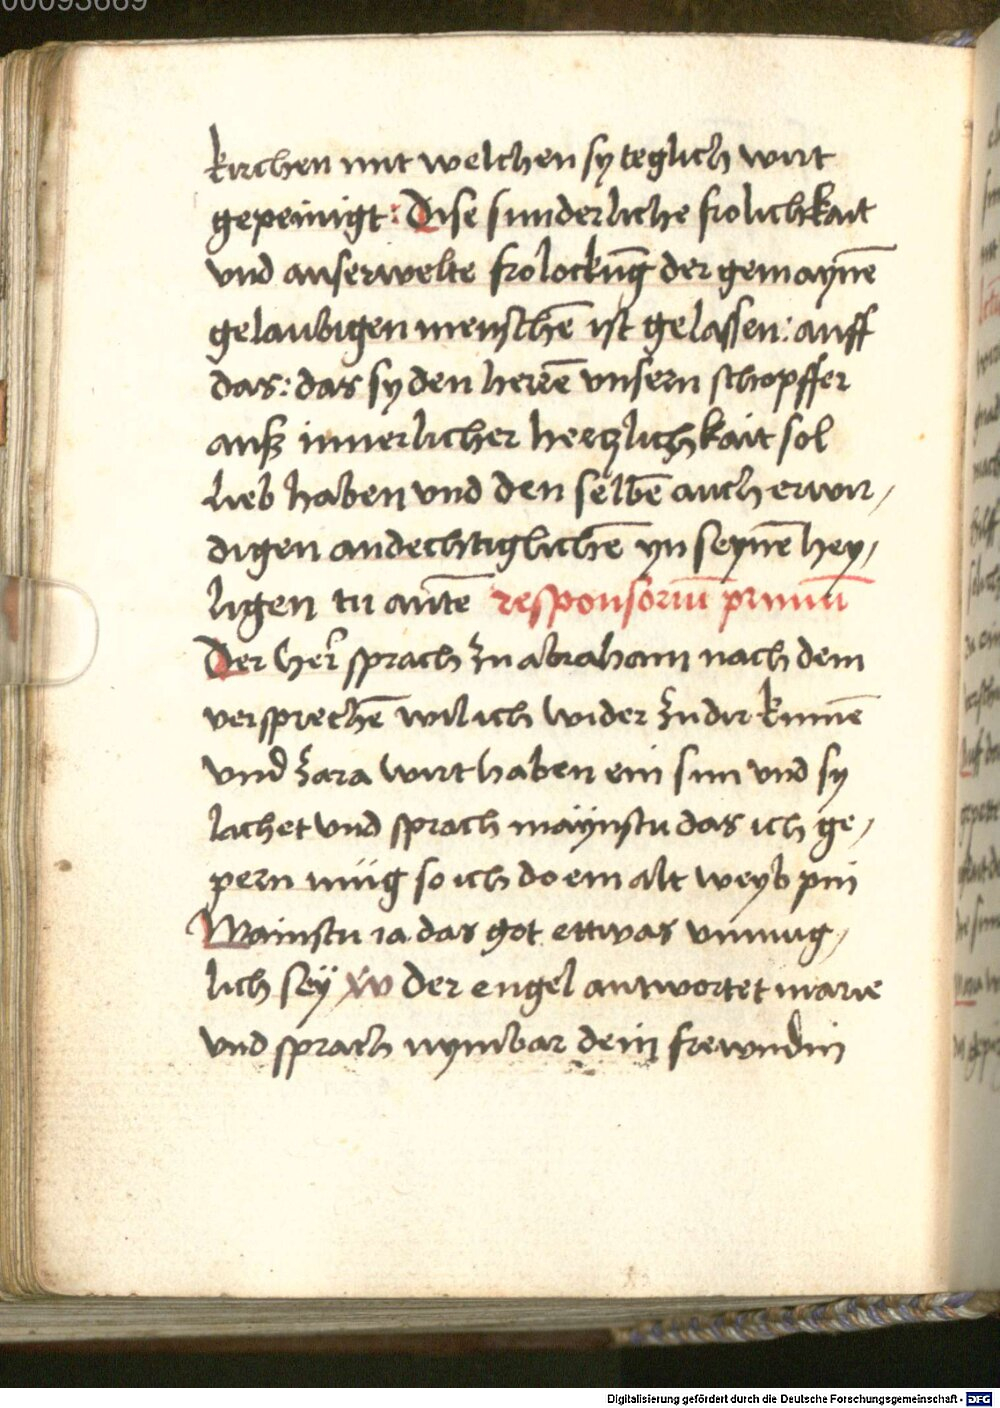 00093669
kirchen mit welchen sy teglich wirt
gepeinigt: Dise sunderliche frolichkait
vnd auserwelte frolockūg der gemaynē
gelaubigen menschē ist gelassen: auff
das: das sy den herrē vnsern schopffer
auß innerlicher hertzlichkait sol
lieb haben vnd den selbē auch erwir/
digen andechtiglichē yn seynē hey/
ligen tu autē responsoriū primū
Der her sprach zu abraham nach dem
versprechē wil ich wider zu dir kumē
vnd zara wirt haben ein sun vnd sy
lachet vnd sprach maÿnstu das ich ge/
pern müg so ich do ein alt weyb pin
Mainstu ia das got ettwas vnmug/
lich seÿ xv der engel antwortet marie
vnd sprach nym bar dein frewndin
Digitalisierung gefördert durch die Deutsche Forschungsgemeinschaft - DFG